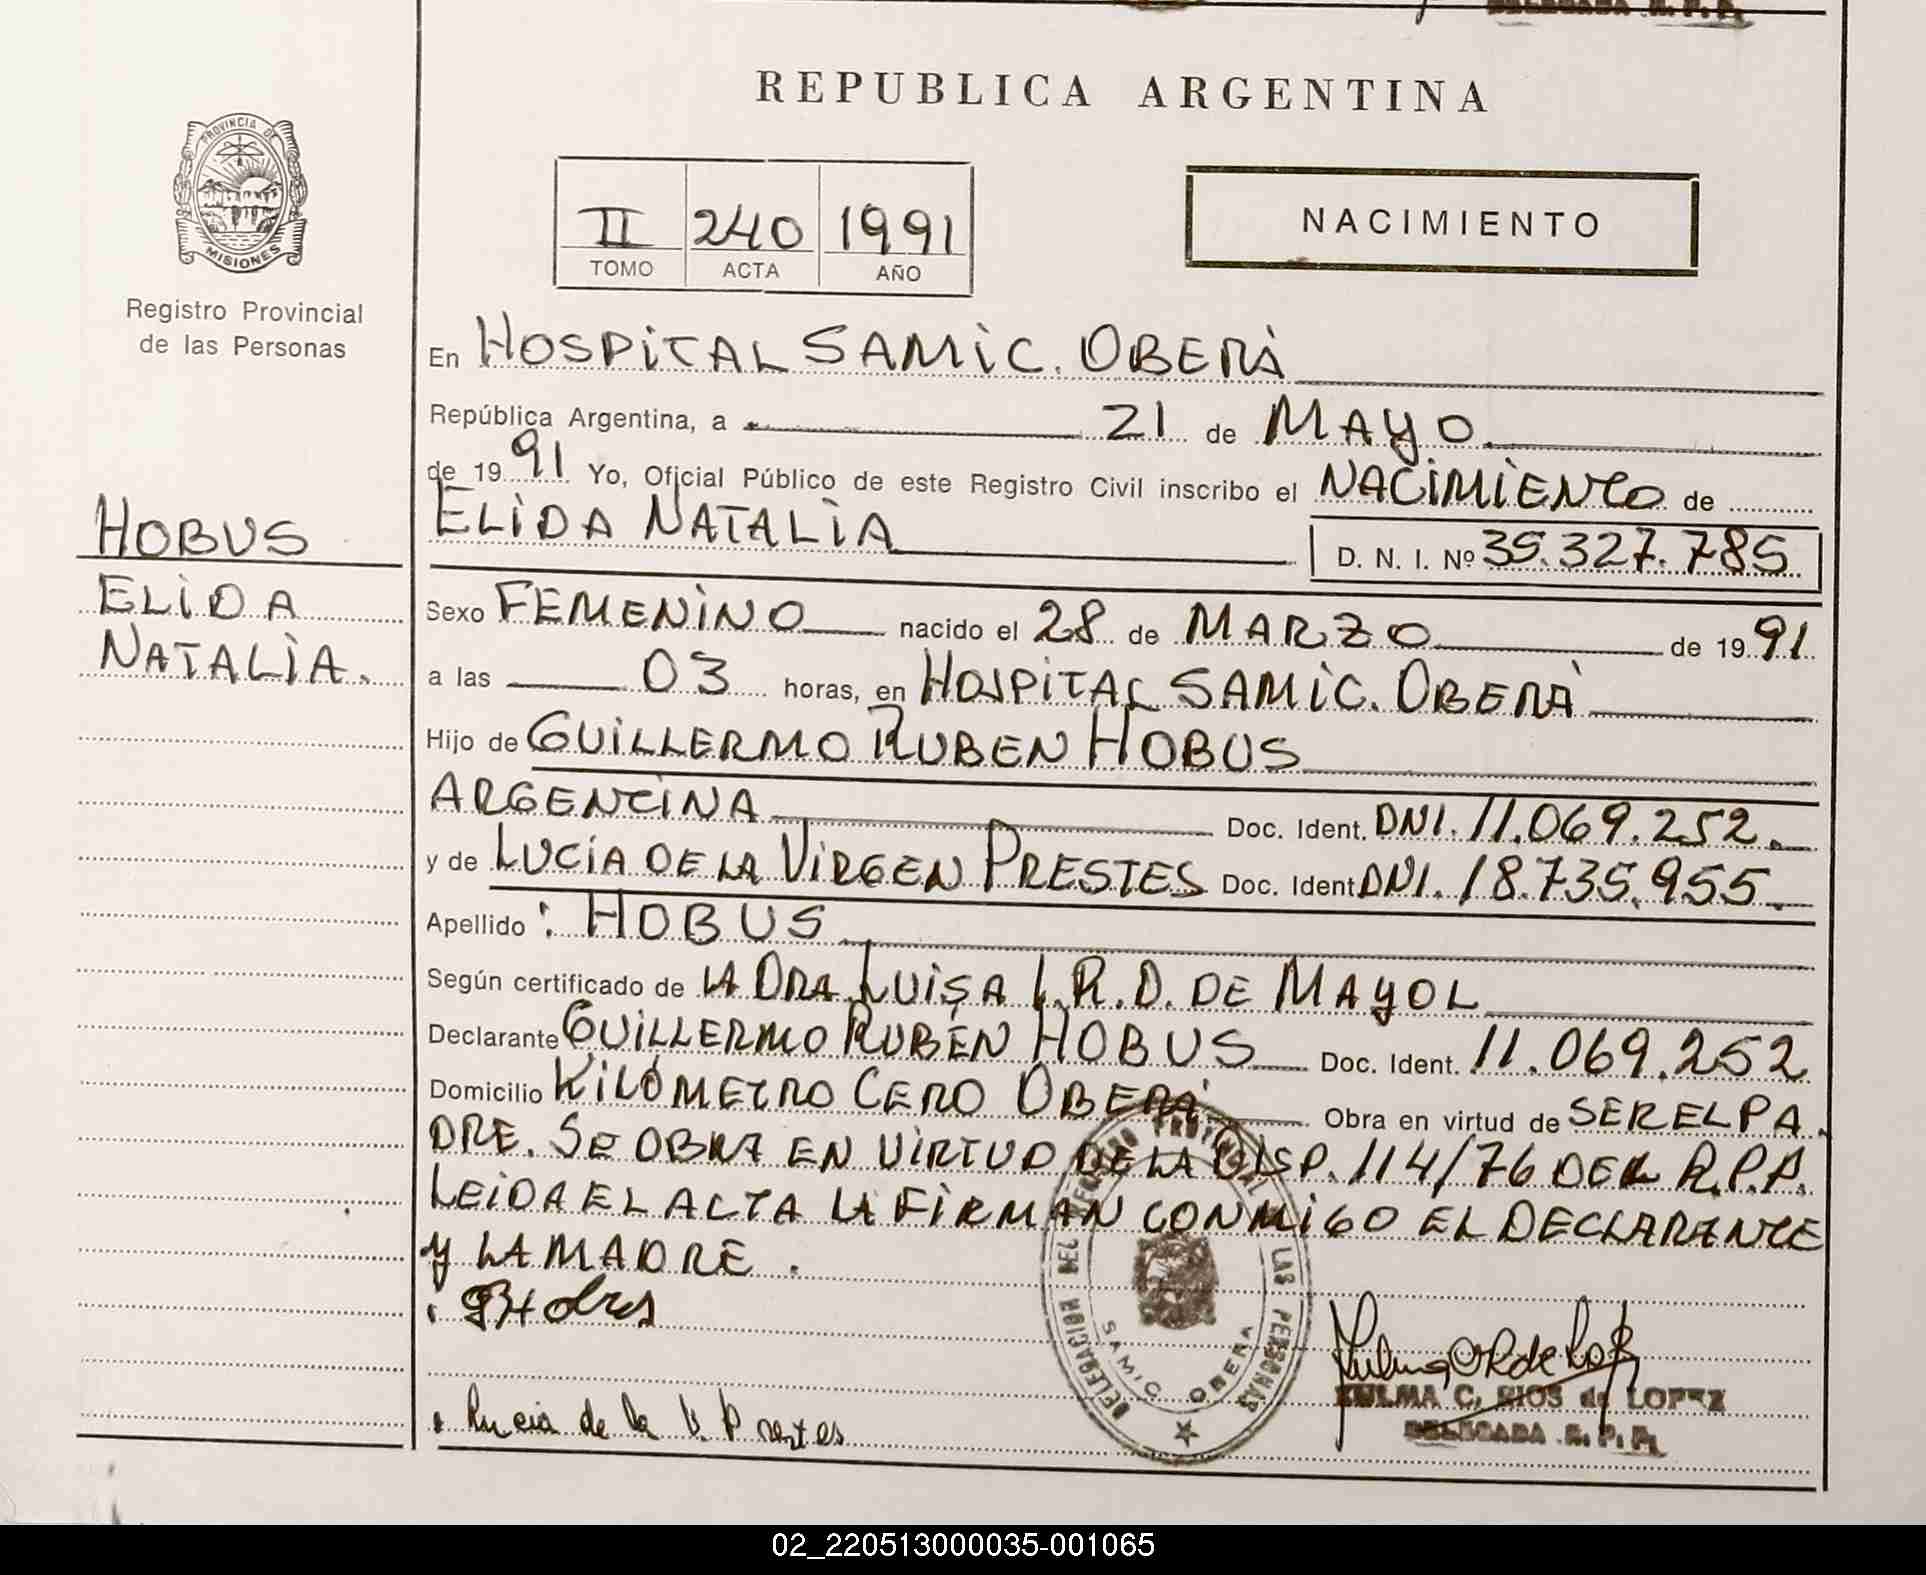 REPUBLICA ARGENTINA
PROVINCIA DE MISIONES
Registro Provincial
de las Personas
II 240 1991
TOMO ACTA AÑO
NACIMIENTO
En HOSPITAL SAMIC. OBERÁ
República Argentina, a 21 de MAYO
de 1991 Yo, Oficial Público de este Registro Civil inscribo el NACIMIENTO de
ELIDA NATALIA
D. N. I. Nº 35.327.785
HOBUS
ELIDA
NATALIA.
Sexo FEMENINO nacido el 28 de MARZO de 1991
a las 03 horas, en HOSPITAL SAMIC. OBERÁ
Hijo de GUILLERMO RUBEN HOBUS
ARGENTINA Doc. Ident. DNI. 11.069.252.
y de LUCIA DE LA VIRGEN PRESTES Doc. Ident DNI. 18.735.955.
Apellido : HOBUS
Según certificado de LA DRA. LUISA I. R. D. DE MAYOL
Declarante GUILLERMO RUBÉN HOBUS Doc. Ident. 11.069.252
Domicilio KILÓMETRO CERO OBERÁ Obra en virtud de SER EL PA
DRE. SE OBRA EN VIRTUD DE LA DISP. 114/76 DEL R.P.P.
LEIDA EL ACTA LA FIRMAN CONMIGO EL DECLARANTE
Y LA MADRE.
Lucia de la V. Prestes
DELEGACION DEL REGISTRO PROVINCIAL DE LAS PERSONAS
SAMIC OBERA
ZULMA C. RIOS de LOPEZ
DELEGADA R. P. P.
02_220513000035-001065